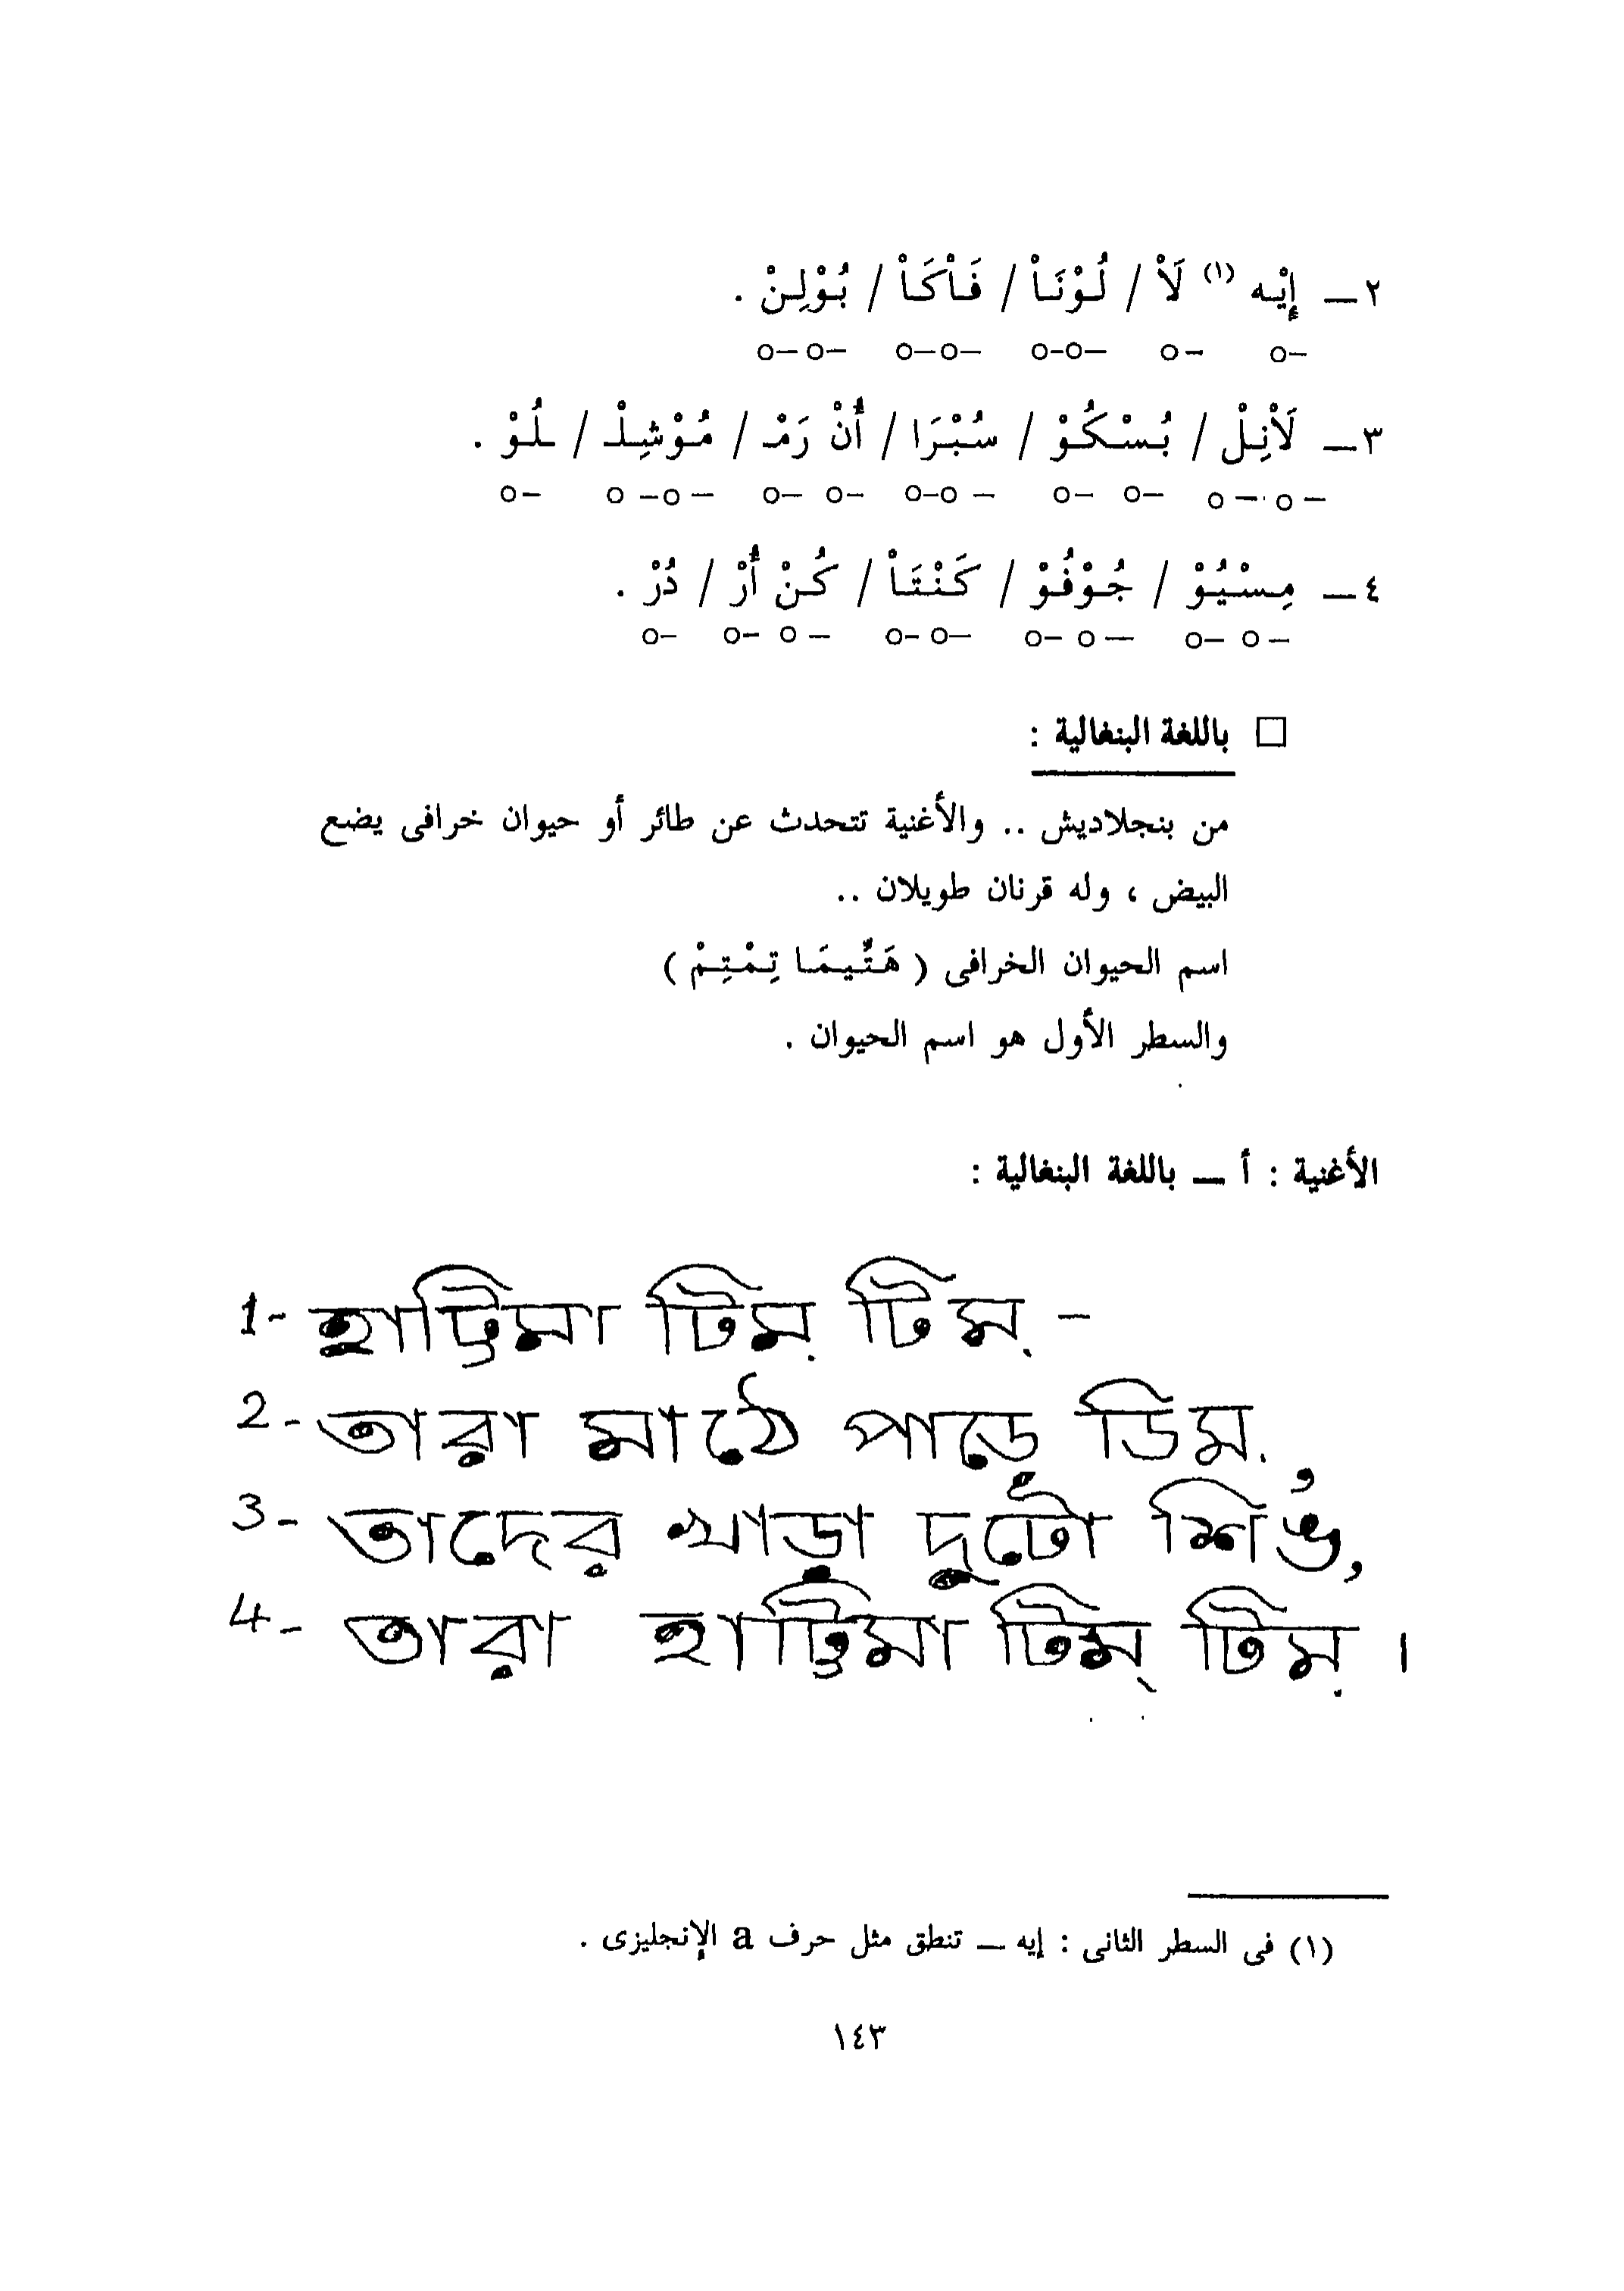 ٢ — إِيْه (١) لَاْ / لُوْنَاْ / فَاْكَاْ / بُوْلِنْ .
–o –o –o–o –o–o –o–o
٣ — لَاْنِلْ / بُسْكُوْ / سُبْرَا / أُنْ رَمْـ / مُوْشِلْـ / ـلُوْ .
–o–o –o –o –o–o –o –o –o–o –o
٤ — مِسْيُوْ / جُوْفُوْ / كَنْتَاْ / كُنْ أُرْ / دُرْ .
–o–o –o–o –o–o –o –o –o
□ باللغة البنغالية :
من بنجلاديش .. والأغنية تتحدث عن طائر أو حيوان خرافى يضع
البيض ، وله قرنان طويلان ..
اسم الحيوان الخرافى ( هَتِّيمَا تِمْتِمْ )
والسطر الأول هو اسم الحيوان .
الأغنية : أ — باللغة البنغالية :
1- হাট্টিমা টিম্ টিম্ -
2- তারা মাঠে পাড়ে ডিম,
3- তাদের খাড়া দুটো শিঙ,
4- তারা হাট্টিমা টিম্ টিম্ ।
(١) فى السطر الثانى : إيه — تنطق مثل حرف a الإنجليزى .
١٤٣